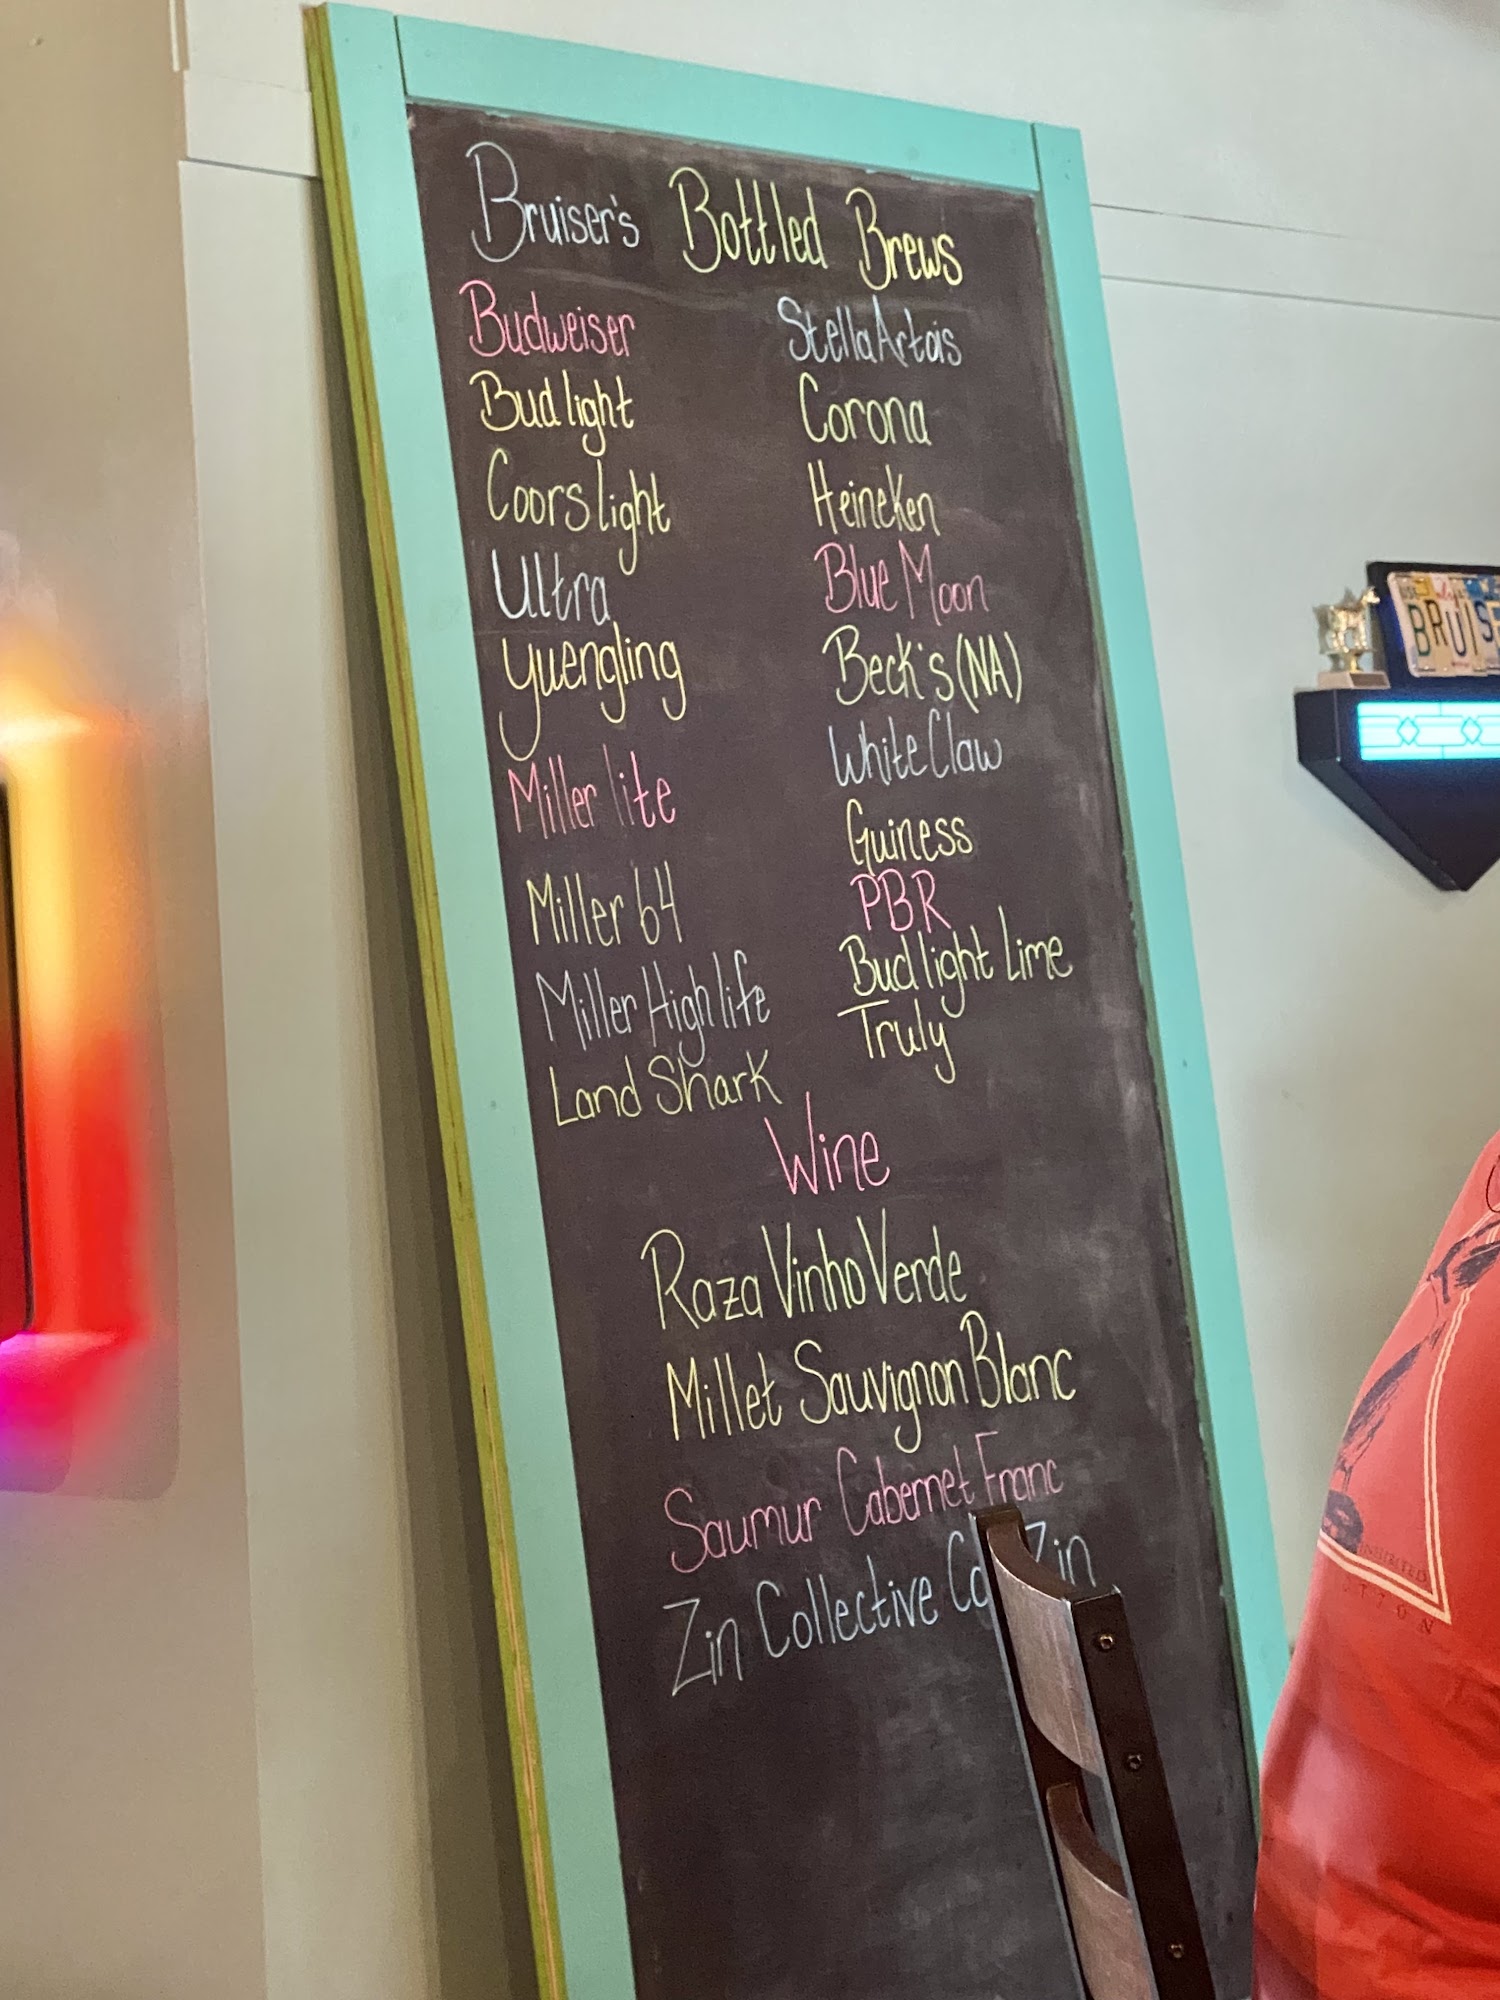 Bruiser's Bottled Brews
Budweiser
Bud light
Coors light
Ultra
Yuengling
Miller lite
Miller 64
Miller High life
Land Shark
Stella Artois
Corona
Heineken
Blue Moon
Beck's (NA)
White Claw
Guiness
PBR
Bud light Lime
Truly
Wine
Raza Vinho Verde
Millet Sauvignon Blanc
Saumur Cabernet Franc
Zin Collective Zin
BRUISE